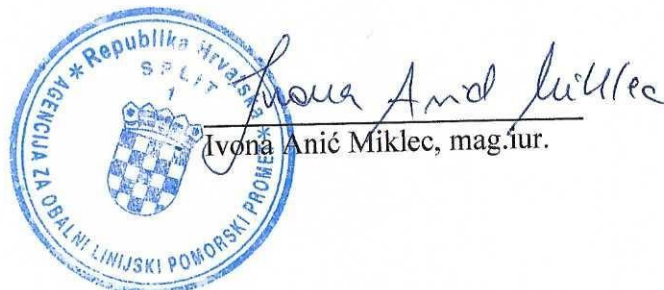 * Republika Hrvatska *
AGENCIJA ZA OBALNI LINIJSKI POMORSKI PROMET
SPLIT
1
Ivona Anić Miklec
Ivona Anić Miklec, mag.iur.